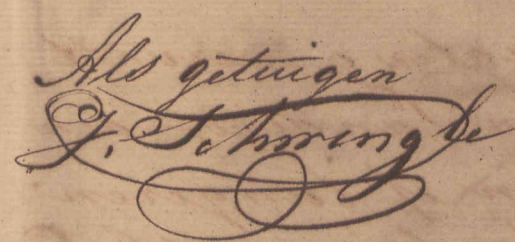 Als getuigen
J. Schwing